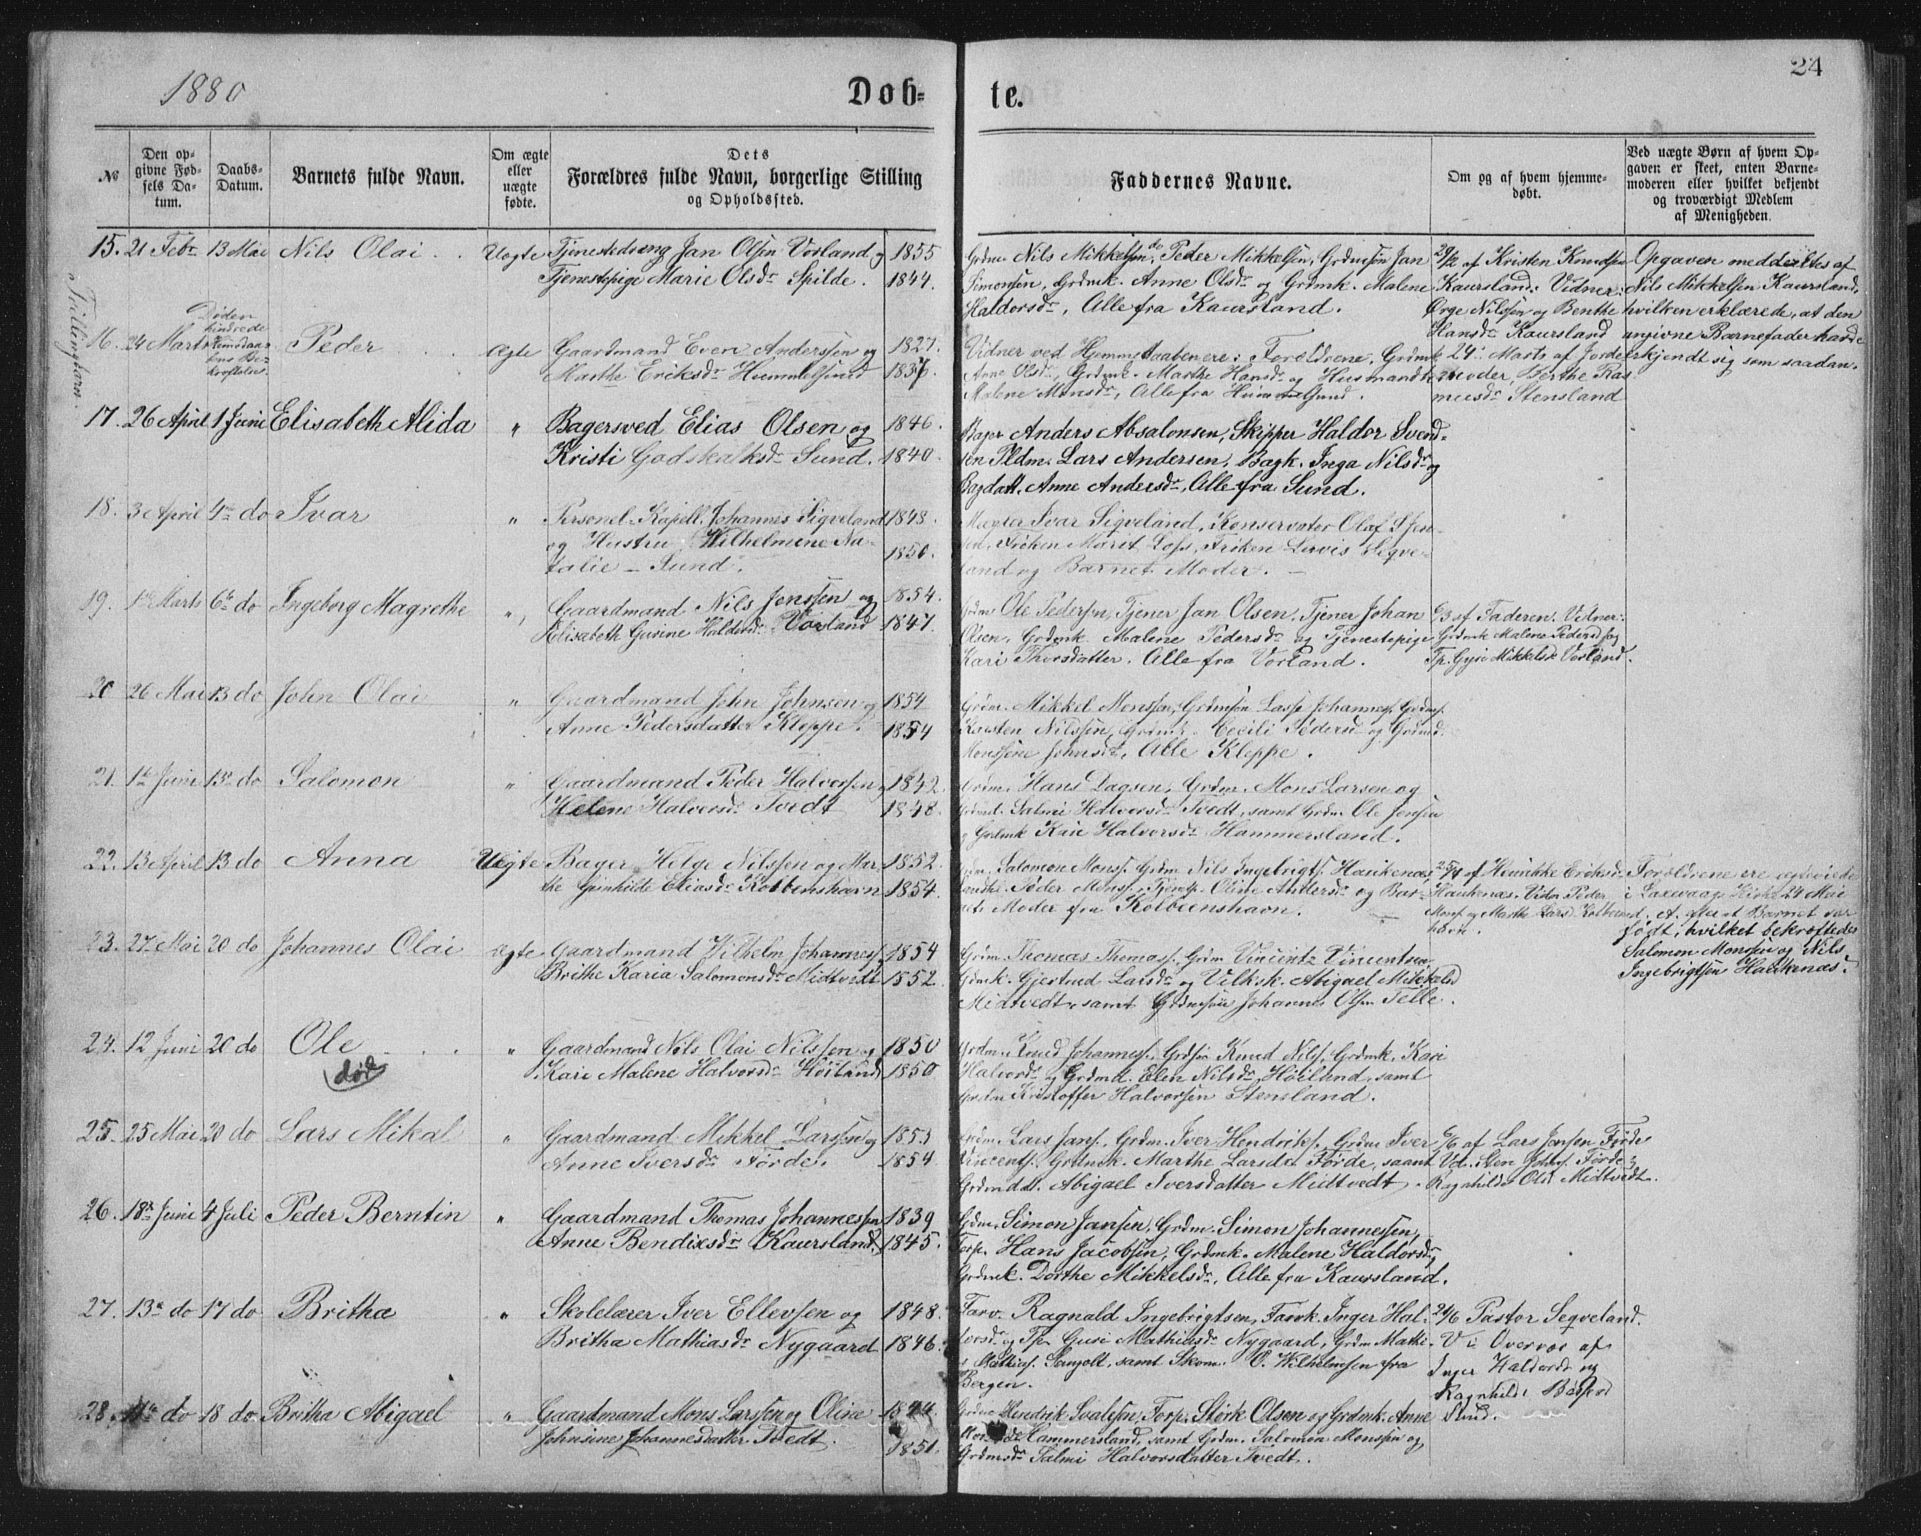 1880
24
Døb-
te.
№
Den op-
givne Fød-
sels Da-
tum.
Daabs-
Datum.
Barnets fulde Navn.
Om ægte
eller
uægte
fødte.
Dets
Forældres fulde Navn, borgerlige Stilling
og Opholdssted.
Faddernes Navne.
Om og af hvem hjemme-
døbt.
Ved uægte Børn af hvem Op-
gaven er skeet, enten Barne-
moderen eller hvilket bekjendt
og troværdigt Medlem
af Menigheden.
15. 21 Febr 13 Mai Nils Olai Uegte Tjenestedreng Jan Olsen Vorland og 1855
Tjenestepige Marie Olsdr Spilde. 1844.
Grdm Nils Mikkelsen, do Peder Mikkelsen, Grdmsøn Jan
Simonsen, Grdmk. Anne Olsdr og Grdmk. Malene
Haldorsdr, Alle fra Kaursland.
29/2 af Kristen Knudsen
Kaursland: Vidner:
Ørge Nilssen og Benthe
Hansdr Kaursland
Opgaven meddeltes af
Nils Mikkelsen Kaursland,
hvilken erklærede, at den
angivne Barnefader havde
erkjendt sig som saadan.
Tvillingbarn.
16. 24 Marts Døden
hindrede
Hjemmedaa-
bens Be-
kræftelse.
Peder Ægte Gaardmand Even Anderssen og 1827.
Marthe Eriksdr Hummelsund 1837.
Vidner ved Hjemmedaaben ere: Forældrene, Grdmk
Anne Olsdr, Grdmk. Marthe Hansdr og Husmandk
Malene Monsdr, Alle fra Hummelsund.
24 Marts af Jorde-
moder, Berthe Ras
musdr Stensland
17. 26 April 1 Juni Elisabeth Alida " Bagersved Elias Olsen og 1846.
Kristi Godskalksdr Sund. 1840.
Bager Anders Absalonsen, Skipper Haldor Svend-
sen Pldm. Lars Andersen, Bagk. Inga Nilsdr og
Bagdatt. Anne Andersdr, Alle fra Sund.
18. 3 April 4de do Ivar " Personel-Kapell. Johannes Sigveland 1848.
og Hustru Wilhelmine Na-
talie – Sund. 1850.
Ivar Sigveland, Konservator Olaf
Frøken Marit Frøken Lovis Sigve-
land og Barnets Moder. –
19. 1ste Marts 6te do Ingeborg Magrethe " Gaardmand Nils Jenssen og 1854.
Elisabeth Gurine Haldorsdr Vorland 1847.
Grdm Ole Pedersen, Tjener Jan Olsen, Tjener Johan
Olsen, Grdmk. Malene Pedersdr og Tjenestepige
Kari Thorsdatter. Alle fra Vorland.
6/3 af Faderen. Vidner:
Grdmk Malene Pedersd og
Tp. Gyri Mikkelsd Vorland.
20 26 Mai 13 do John Olai " Gaardmand John Johnsen og 1854
Anne Pedersdatter Kleppe. 1854
Grdm. Mikkel Monssen, Grdmsøn Lasse Johanness. Grdms.
Karsten Nilssen, Grdmk. Cecili Pedersd og Grdmd.
Monssine Johnsdr, Alle Kleppe.
21. 1ste Juni 13de do Salomon " Gaardmand Peder Halvorsen og 1842.
Helene Halvorsdr Tvedt 1848.
Grdm. Hans Dagsen, Grdm. Mons Larsen og
Grdmd. Salmi Halvorsdr Tvedt, samt Grdm. Ole Jensen
og Grdmk Kari Halvorsdr Hammersland.
22. 13 April 13 do Anna Uegte Bager Helge Nilssen og Mar- 1852.
the Gunhilde Eliasdr Kolbenshavn 1854.
Grdm. Salomon Monss. Grdm Nils Ingebrigts. Haukenæs,
Peder Monss. Tjenp. Oline Andersdr og Bar-
nets Moder fra Kolbeenshavn.
25/4 af Henrikke Eriksd
Haukenæs. Vidn. Peder
Monss og Marthe Larsd. Kolbeens
havn.
Forældrene ere egteviede
i Kirke 24 Mai
d. A. efterat Barnet var
født, hvilket bekræftedes
Salomon Monssen og Nils
Ingebrigtsen Haukenæs.
23. 27 Mai 20 do Johannes Olai ægte Gaardmand Wilhelm Johanness. 1854
Brithe Karia Salomonsdr Midtvedt 1852.
Grdm Thomas Thomass. Grdm Vincentz Vincentsen,
Grdmk. Gjertrud Larsdr og Abigael Mikkelsd
Midtvedt, samt Grdmsøn Johannes Olsen Telle.
24. 12 Juni 20 do Ole " Gaardmand Nils Olai Nilssen og 1850
død Kari Malene Halvorsdr Høiland 1850
Grdm. Knud Johanness. Grdsøn Knud Nils. Grdmk. Kari
Halvorsd og Grdmd. Elen Nilsdr Høiland, samt
Grdm Kristoffer Halvorsen Stensland.
25. 25 Mai 20 do Lars Mikal " Gaardmand Mikkel Larssen og 1853
Anne Iversdr Førde. 1854
Grdm. Lars Jans. Grdm. Iver Hendriks. Grdm Iver
Vincents. Grdmk. Marthe Larsdr Førde, samt
Grdmdatt. Abigael Iversdatter Midtvedt.
6/6 af Lars Jansen Førde
Vd. Sten Johns. Førde og
Ragnhilde Olsd Midtvedt.
26. 18de Juni 4 Juli Peder Berntin " Gaardmand Thomas Johannessen 1839
Anne Bendixsdr Kaursland. 1845.
Grdm. Simon Jansen, Grdm. Simon Johannessen,
Forp. Hans Jacobsen, Grdmk. Malene Haldorsdr,
Grdmk. Dorthe Mikkelsdr, Alle fra Kaursland.
27. 13de do 17 do Britha " Skolelærer Iver Ellevsen og 1848.
Britha Mathiasdr Nygaard 1846.
Farv. Ragnald Ingebrigtsen, Farvk. Inger Hal-
vorsdr og Tp. Guri Mathiasdr Nygaard, Grdm Mathi-
as Mathias. samt Skom. O. Wilhelmsen fra
Bergen.
24/6 Pastor Seqveland.
V. Overvær af
Inger Haldorsd og
Ragnhild
Sund.
28. 11te do 18 do Britha Abigael " Gaardmand Mons Larssen og Oline 1844
Johnsine Johannesdatter Tvedt. 1851.
Grdm Hendrik Salassen, Forp. Størk Olsen og Grdmk. Anne
Hammersland, samt Grdm. Salomon Monssen og
Grdmsdr Salmi Halvorsdatter Tvedt.